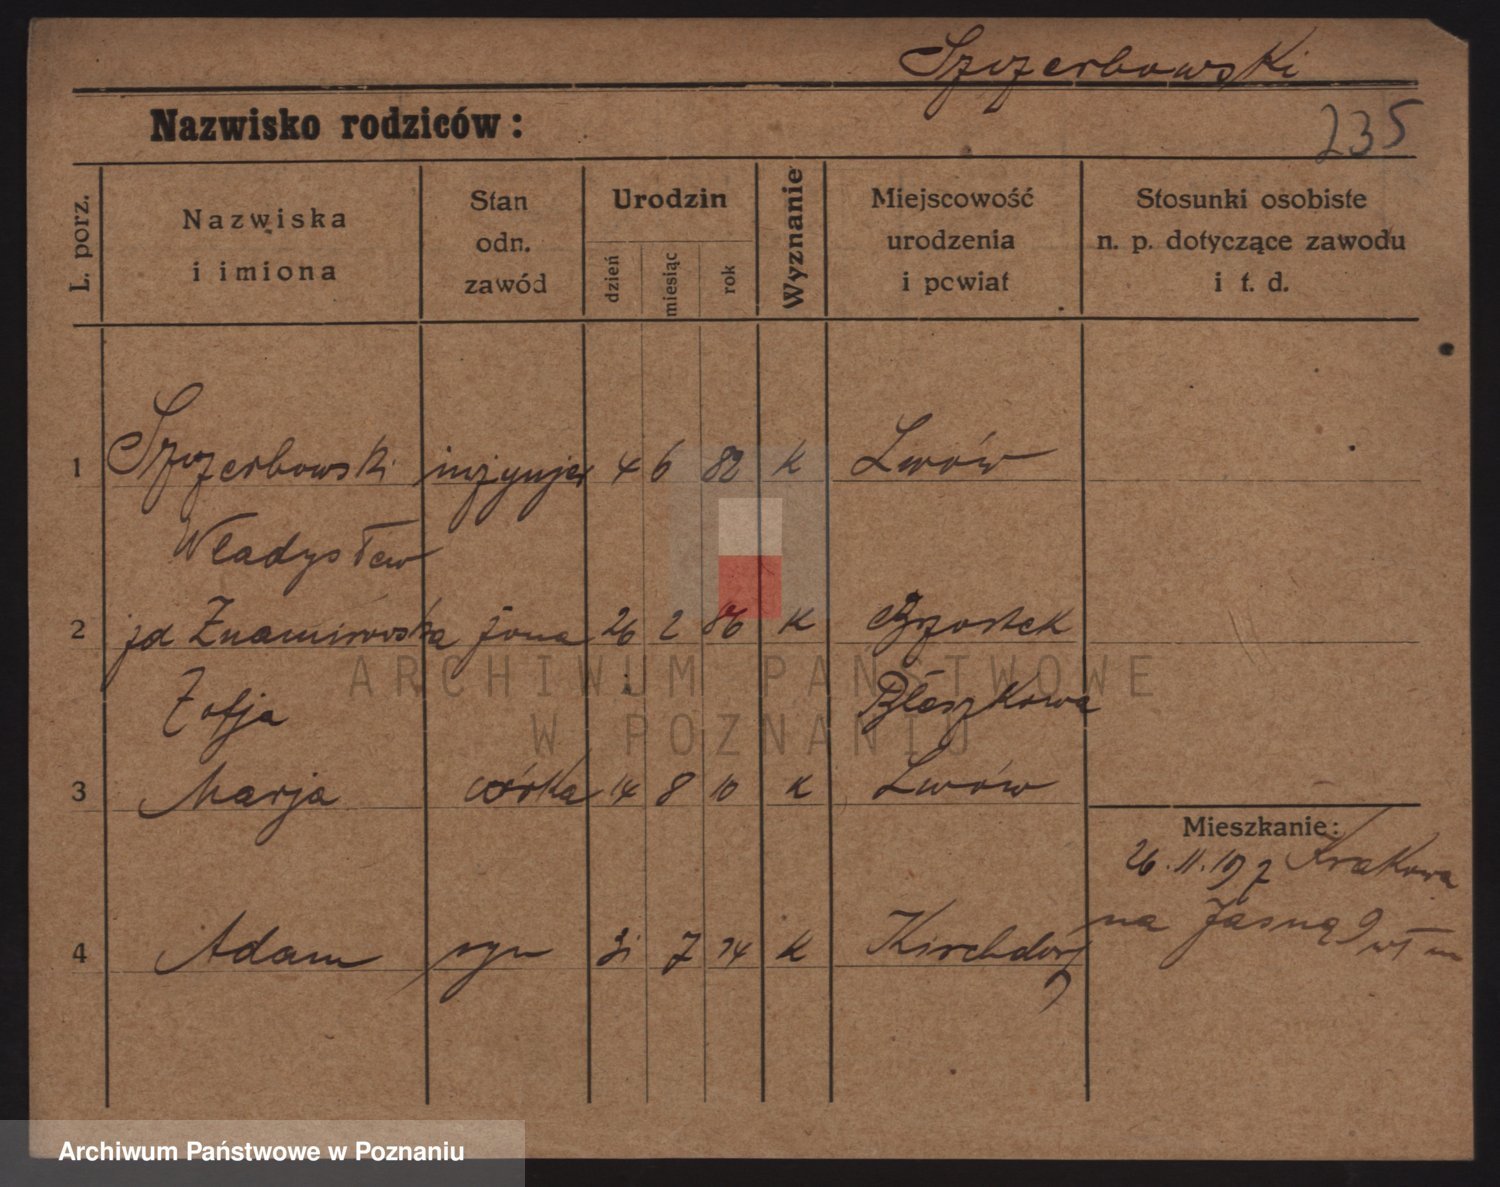 Szczerbowski
Nazwisko rodziców:
235
L. porz.
Nazwiska
i imiona
Stan
odn.
zawód
Urodzin
dzień
miesiąc
rok
Wyznanie
Miejscowość
urodzenia
i powiat
Stosunki osobiste
n. p. dotyczące zawodu
i t. d.
1 Szczerbowski inżynjer 4 6 82 K Lwów
Władysław
2 Znamirowska żona 26 2 86 K Brzostek
Zofja
3 Marja córka 14 8 10 K Lwów
Mieszkanie:
26.11.19 z Krakowa
4 Adam syn 31 7 14 K Kirchdorf
na Jasną 9
ARCHIWUM PAŃSTWOWE
W POZNANIU
Archiwum Państwowe w Poznaniu